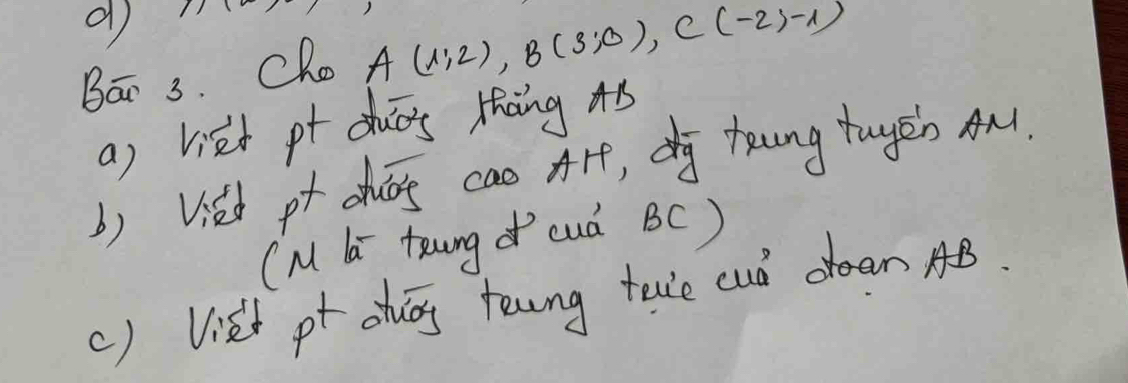 d)
Bài 3. Cho A (1;2), B (3;0), C (-2;-1)
a) Viết pt đường thẳng AB
b) Viết pt đường cao AH, đg trung tuyến AM.
(M là trung đ' cuả BC)
c) Viết pt đường trung trực cuả đoạn AB.